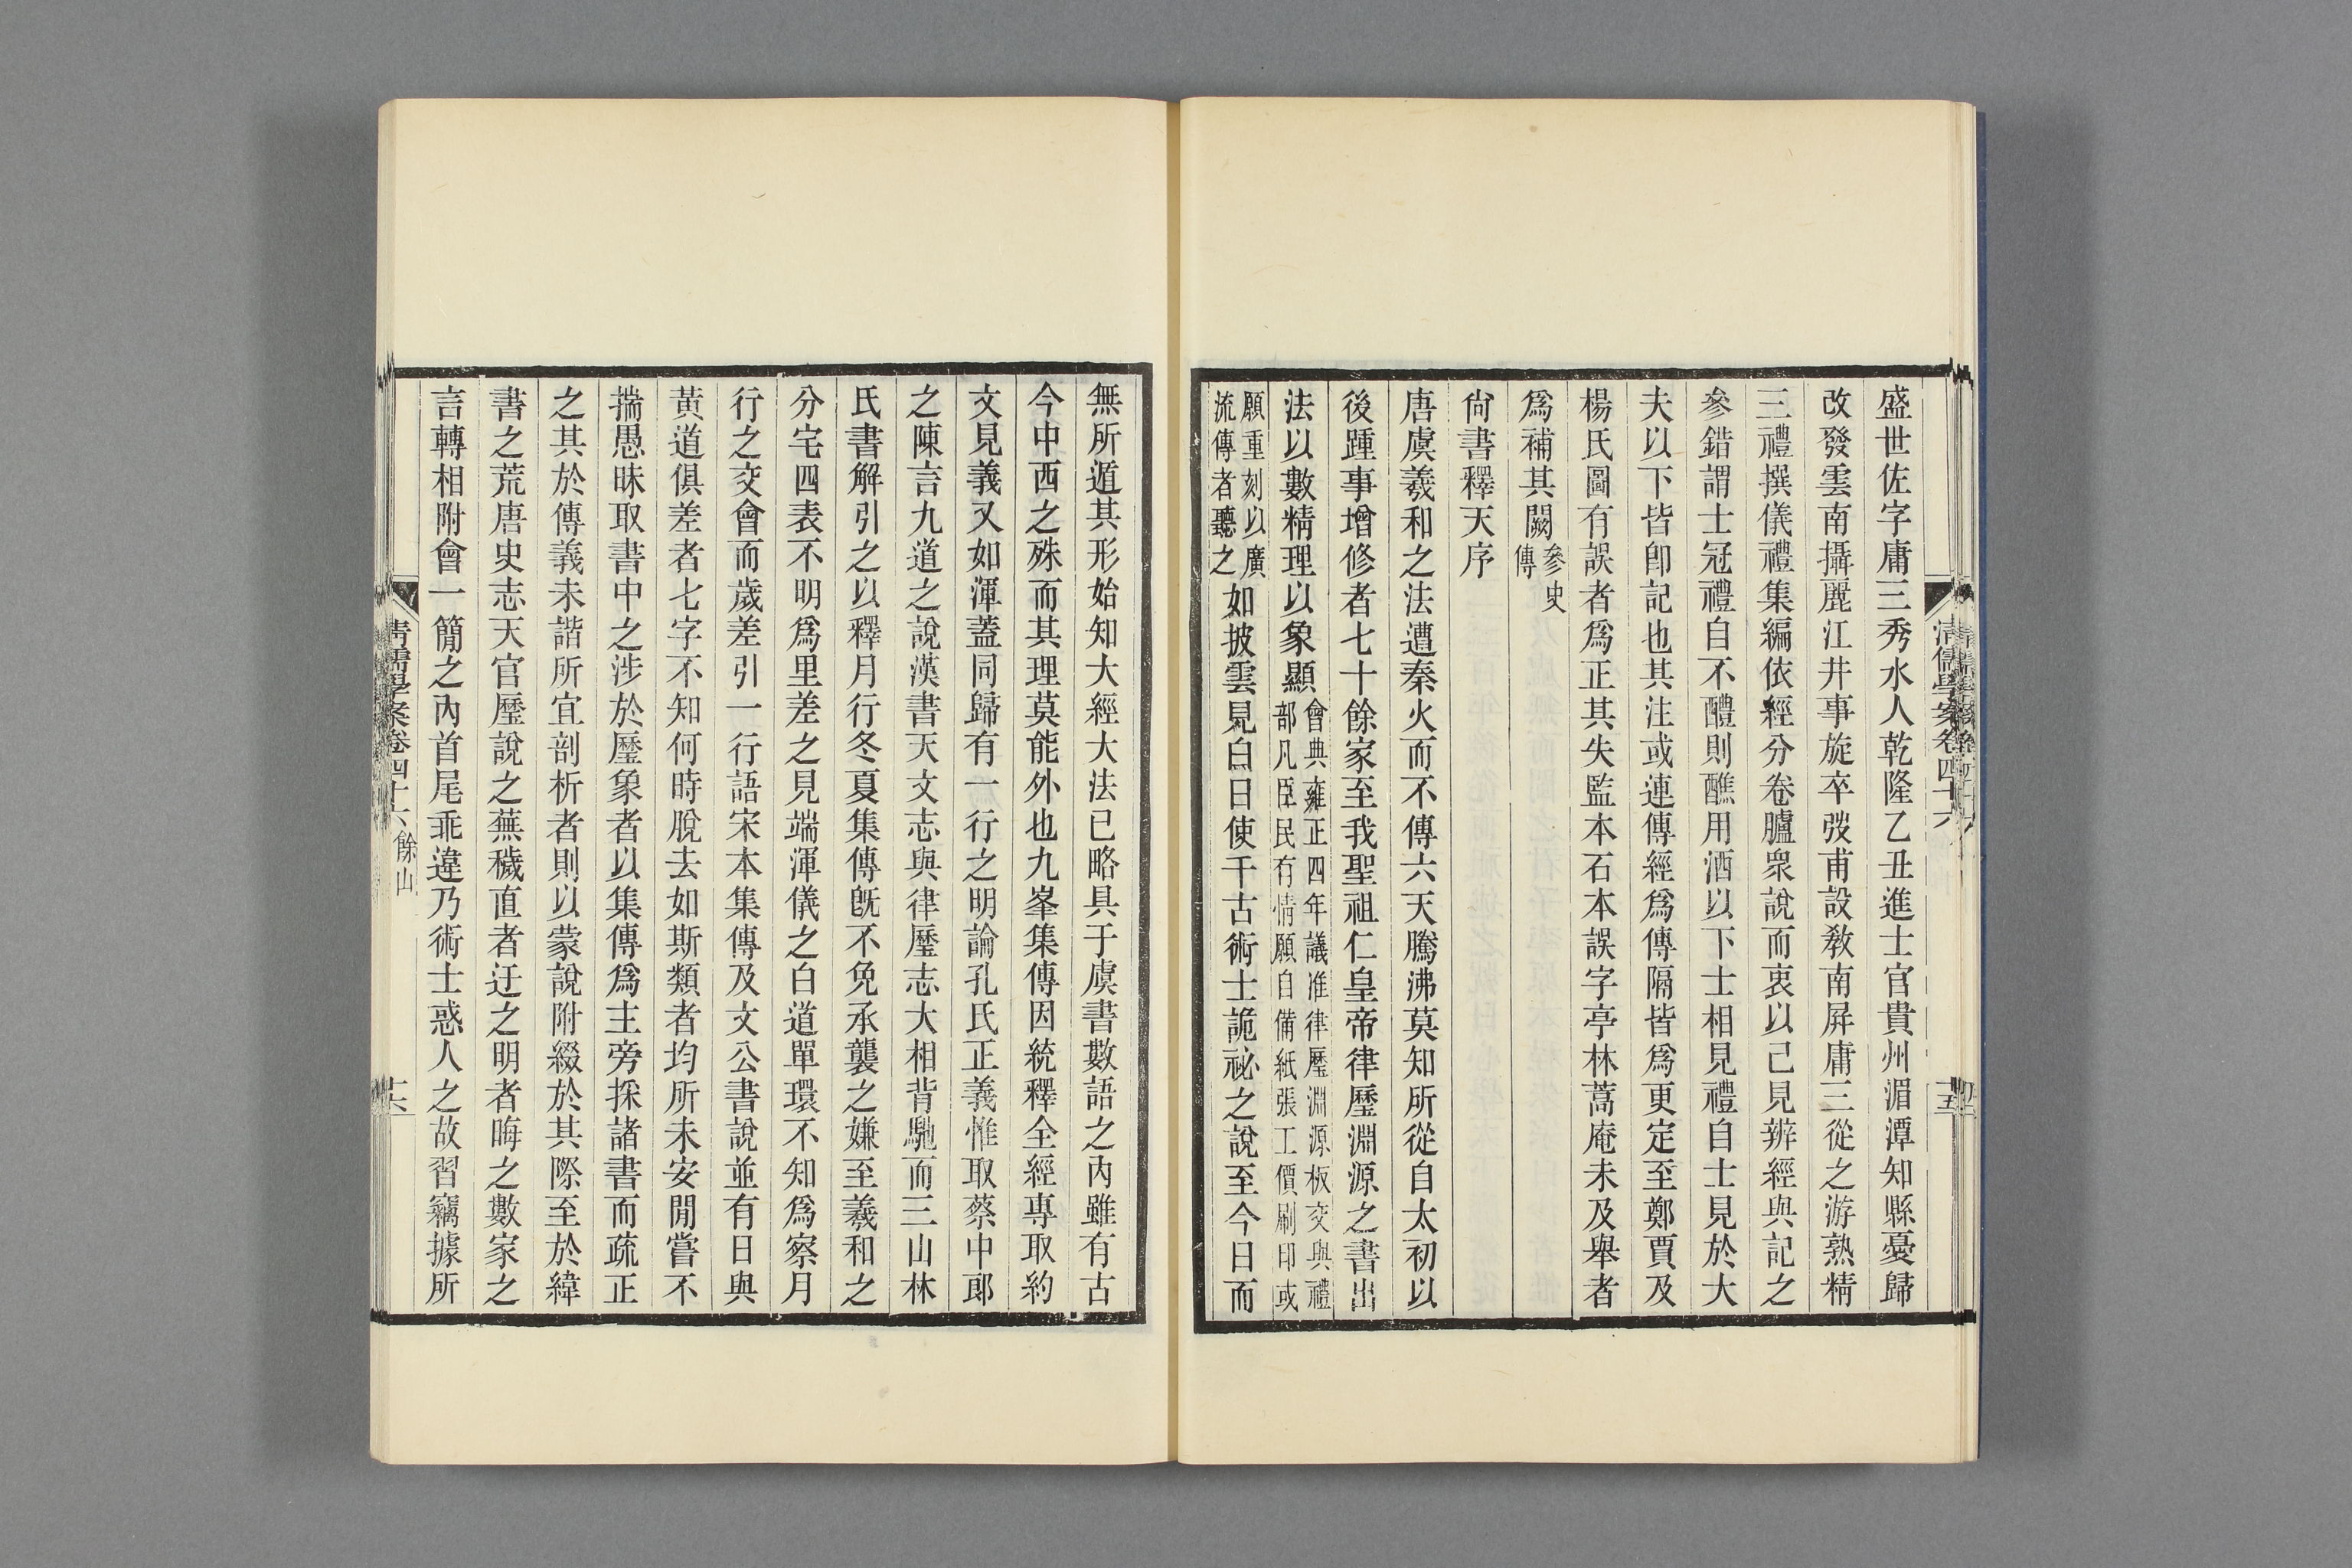 盛世佐字庸三秀水人乾隆乙丑進士官貴州湄潭知縣憂歸
改發雲南攝麗江井事旋卒弢甫設敎南屛庸三從之游熟精
三禮撰儀禮集編依經分卷臚衆說而衷以己見辨經與記之
參錯謂士冠禮自不醴則醮用酒以下士相見禮自士見於大
夫以下皆卽記也其注或連傳經爲傳隔皆爲更定至鄭賈及
楊氏圖有誤者爲正其失監本石本誤字亭林蒿庵未及舉者
爲補其闕參史傳
尙書釋天序
唐虞羲和之法遭秦火而不傳六天騰沸莫知所從自太初以
後踵事增修者七十餘家至我聖祖仁皇帝律歷淵源之書出
法以數精理以象顯會典雍正四年議准律歷淵源板交與禮部凡臣民有情願自備紙張工價刷印或
願重刻以廣流傳者聽之如披雲見白日使千古術士詭祕之說至今日而
清儒學案卷四十六
十五
無所遁其形始知大經大法已略具于虞書數語之內雖有古
今中西之殊而其理莫能外也九峯集傳因統釋全經專取約
文見義又如渾蓋同歸有一行之明論孔氏正義惟取蔡中郞
之陳言九道之說漢書天文志與律歷志大相背馳而三山林
氏書解引之以釋月行冬夏集傳旣不免承襲之嫌至羲和之
分宅四表不明爲里差之見端渾儀之白道單環不知爲察月
行之交會而歲差引一行語宋本集傳及文公書說並有日與
黃道俱差者七字不知何時脫去如斯類者均所未安閒嘗不
揣愚昧取書中之涉於歷象者以集傳爲主旁採諸書而疏正
之其於傳義未諧所宜剖析者則以蒙說附綴於其際至於緯
書之荒唐史志天官歷說之蕪穢直者迂之明者晦之數家之
言轉相附會一簡之內首尾乖違乃術士惑人之故習竊據所
清儒學案卷四十六 餘山
十六